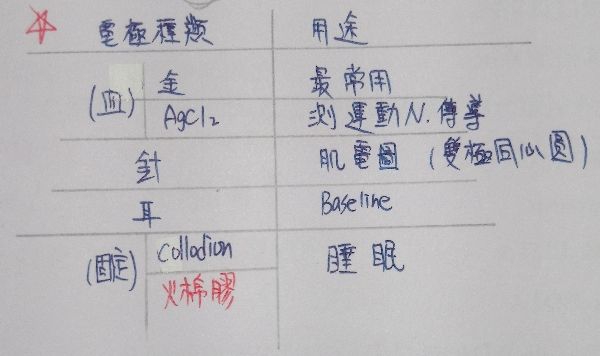 電極種類 用途
(皿) 金 最常用
AgCl₂ 測運動N.傳導
針 肌電圖 (雙極同心圓)
耳 Baseline
(固定) Collodion 睡眠
火棉膠